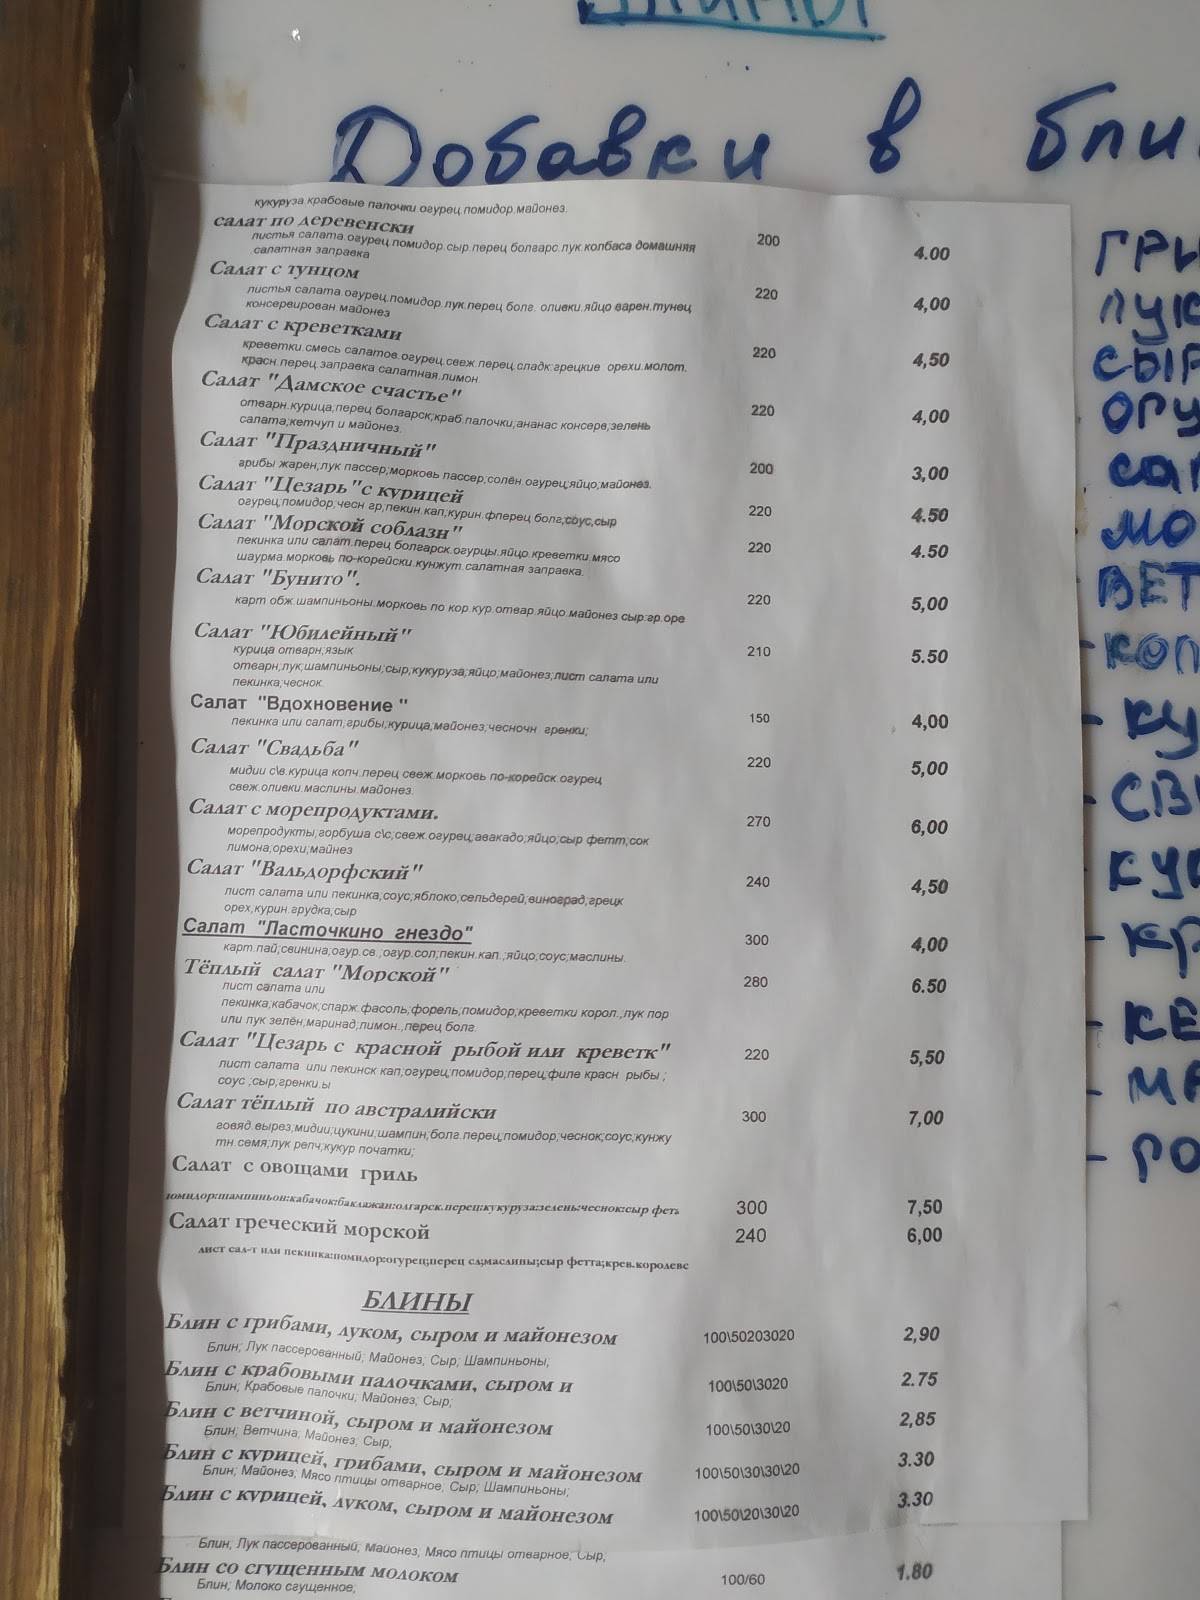 Добавки в
кукуруза.крабовые палочки.огурец.помидор.майонез.
салат по деревенски 200 4.00
листья салата.огурец.помидор.сыр.перец болгарс.лук.колбаса домашняя
салатная заправка
Салат с тунцом 220 4,00
листья салата.огурец.помидор.лук.перец болг. оливки.яйцо варен.тунец
консервирован.майонез
Салат с креветками 220 4,50
креветки.смесь салатов.огурец.свеж.перец.сладк.грецкие орехи.молот.
красн.перец.заправка салатная.лимон
Салат "Дамское счастье" 220 4,00
отварн.курица;перец болгарск;краб.палочки;ананас консерв;зелень
салата;кетчуп и майонез.
Салат "Праздничный" 200 3,00
грибы жарен;лук пассер;морковь пассер;солён.огурец;яйцо;майонез.
Салат "Цезарь"с курицей 220 4.50
огурец;помидор;чесн гр,пекин.кап,курин.фперец болг,соус,сыр
Салат "Морской соблазн" 220 4.50
пекинка или салат.перец болгарск.огурцы.яйцо.креветки.мясо
шаурма морковь по-корейски.кунжут.салатная заправка.
Салат "Бунито". 220 5,00
карт обж.шампиньоны.морковь по кор.кур.отвар.яйцо.майонез сыр.гр.оре
Салат "Юбилейный" 210 5.50
курица отварн;язык
отварн;лук;шампиньоны;сыр,кукуруза;яйцо;майонез;лист салата или
пекинка;чеснок.
Салат "Вдохновение " 150 4,00
пекинка или салат;грибы;курица;майонез;чесночн гренки;
Салат "Свадьба" 220 5,00
мидии с\в.курица копч.перец свеж.морковь по-корейск.огурец
свеж.оливки.маслины.майонез.
Салат с морепродуктами. 270 6,00
морепродукты;горбуша с\с;свеж.огурец;авакадо;яйцо;сыр фетт;сок
лимона;орехи;майнез
Салат "Вальдорфский" 240 4,50
лист салата или пекинка;соус;яблоко;сельдерей;виноград;грецк
орех,курин.грудка;сыр
Салат "Ласточкино гнездо" 300 4,00
карт.пай;свинина;огур.св.;огур.сол;пекин.кап.;яйцо;соус;маслины.
Тёплый салат "Морской" 280 6.50
лист салата или
пекинка;кабачок;спарж.фасоль;форель;помидор;креветки корол.,лук пор
или лук зелён;маринад;лимон.,перец болг.
Салат "Цезарь с красной рыбой или креветк" 220 5,50
лист салата или пекинск кап;огурец;помидор;перец;филе красн рыбы ;
соус ;сыр,гренки.ы
Салат тёплый по австралийски 300 7,00
говяд.вырез;мидии;цукини;шампин;болг.перец;помидор;чеснок;соус;кунжу
тн.семя;лук репч;кукур початки;
Салат с овощами гриль
помидор:шампиньон:кабачок:баклажан:олгарск.перец:кукуруза:зелень:чеснок:сыр феть 300 7,50
Салат греческий морской 240 6,00
лист сал-т или пекинка:помидор:огурец;перец сл;маслины;сыр фетта;крев.королевс
БЛИНЫ
Блин с грибами, луком, сыром и майонезом 100\50203020 2,90
Блин; Лук пассерованный; Майонез; Сыр; Шампиньоны;
Блин с крабовыми палочками, сыром и 100\50\3020 2.75
Блин; Крабовые палочки; Майонез; Сыр;
Блин с ветчиной, сыром и майонезом 100\50\30\20 2,85
Блин; Ветчина; Майонез; Сыр,
Блин с курицей, грибами, сыром и майонезом 100\50\30\30\20 3.30
Блин; Майонез; Мясо птицы отварное; Сыр; Шампиньоны;
Блин с курицей, луком, сыром и майонезом 100\50\20\30\20 3.30
Блин; Лук пассерованный; Майонез; Мясо птицы отварное; Сыр;
Блин со сгущенным молоком 100/60 1.80
Блин; Молоко сгущенное;